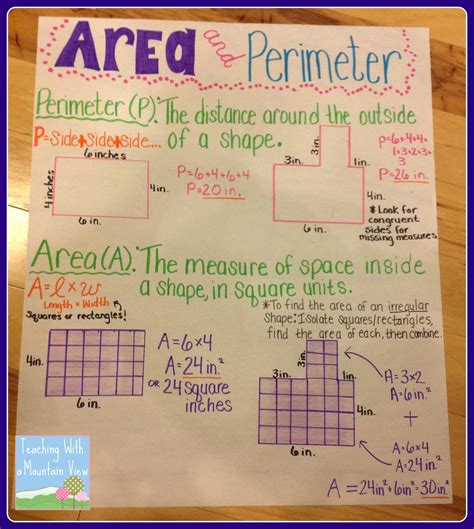 Area and Perimeter
Perimeter (P): The distance around the outside
P=Side+Side+Side... of a shape.
6 inches
4 inches
4in.
6 in.
P=6+4+6+4
P=20in.
3in.
3in.
1in.
4in.
6 in.
P=6+4+4+
1+3+2+3+
3
P=26 in.
*Look for
congruent
sides for
missing measures
Area(A): The measure of space inside
A=l×w a shape, in square units.
Length × Width
Squares or rectangles!
*To find the area of an irregular
shape: Isolate squares/rectangles,
find the area of each, then combine.
4in.
6in.
A=6×4
A=24in.²
OR 24 Square
inches
3in.
1in.
4in.
6in.
A=3×2
A=6in.²
+
A=6×4
A=24in.²
A=24in²+6in²=30in.²
Teaching With
a Mountain View